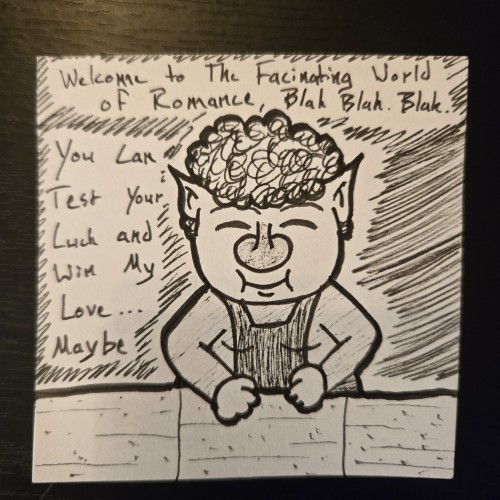 Welcome to The Facinating World
of Romance, Blah Blah. Blah.
You Can
Test Your
Luck and
Win My
Love...
Maybe